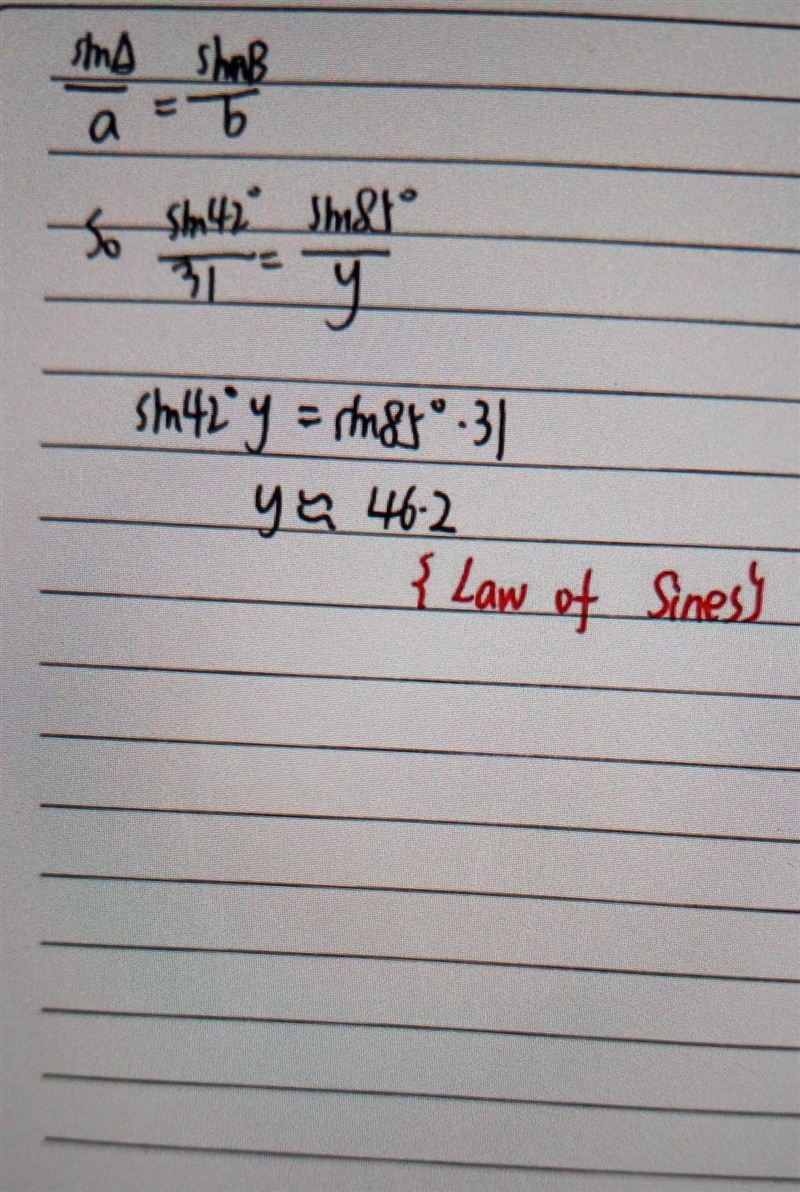 sinA/a = sinB/b
So sin42°/31 = sin85°/y
sin42° y = sin85° · 31
y ≈ 46.2
{Law of Sines}